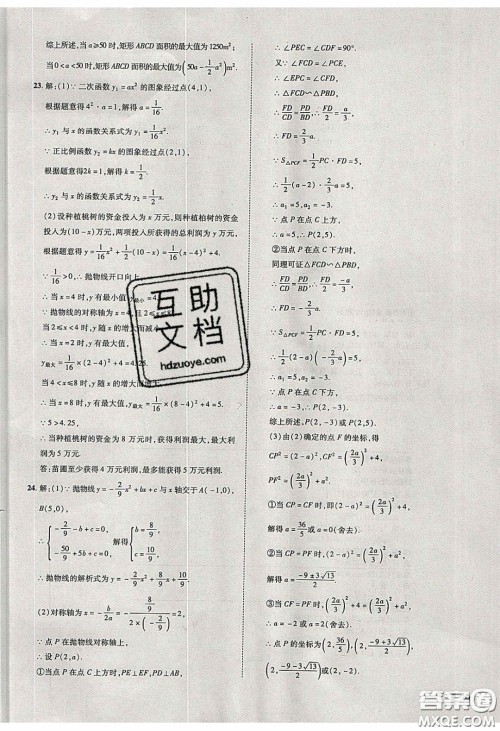 综上所述,当 a≥50 时,矩形 ABCD 面积的最大值为 1250m²;
当 0<a<50 时,矩形 ABCD 面积的最大值为(50a-1/2a²)m².
23. 解:(1)∵二次函数 y₁=ax² 的图象经过点(4,1),
根据题意得 4²·a=1,解得 a=1/16,
∴y₁ 与 x 的函数关系式为 y₁=1/16x².
∵正比例函数 y₂=kx 的图象经过点(2,1),
根据题意得 2k=1,解得 k=1/2,
∴y₂ 与 x 的函数关系式为 y₂=1/2x.
(2)设种植桃树的资金投入为 x 万元,则种植柏树的资金
投入为(10-x)万元,两项投入所获得的总利润为 y 万元,
根据题意得 y=1/16x²+1/2(10-x)=1/16(x-4)²+4.
∵1/16>0,∴抛物线开口向上.
∴当 x=4 时,y 有最小值,
∵抛物线的对称轴为 x=4,且
当 2≤x<4 时,y 随 x 的
y最大=1/16×(2-4)²+4=4.25.
当 4≤x≤8 时,y 随 x 的增大而增大.
∴当 x=8 时,y 有最大值,y最大=1/16×(8-4)²+4=5.
∵5>4.25,
∴当种植桃树的资金为 8 万元时,获得利润最大,最大利
润为 5 万元.
答:苗圃至少获得 4 万元利润,最多获得 5 万元利润.
24. 解:(1)∵抛物线 y=-2/9x²+bx+c 与 x 轴交于 A(-1,0),
B(5,0),
∴{-2/9-b+c=0, -50/9+5b+c=0,解得{b=8/9, c=10/9.
∴抛物线的解析式为 y=-2/9x²+8/9x+10/9.
(2)对称轴为 x=-(8/9)/(2×(-2/9))=2,
∵点 P 在抛物线对称轴上,
∴设 P(2,a).
①当点 P 在点 C 上方时,PE⊥EF,PD⊥AB,
∴∠PEC=∠CDF=90°.
又∵∠FCD=∠PCE,
∴∠EPC=∠CFD,
∴△FCD∽△PBD,
∴FD/PD=CD/BD,∴FD/a=2/3,∴FD=2a/3.
∵S△PCF=1/2PC·FD=5,
∴1/2(a-2)·2/3a=5,
∴a₁=5,a₂=-3(舍去).
∵点 P 在点 C 上方,
∴P(2,5).
②当点 P 在点 C 下方时,
同理可证△FCD∽△PBD,
∴FD/PD=CD/BD,
∴FD/a=2/3,∴FD=2/3a.
∵S△PCF=1/2PC·FD=5,
∴1/2(2-a)·(-2/3a)=5,
∴a=5(舍去),a=-3.
∴a=-3,∴P(2,-3).
综上所述,P(2,-3)或 P(2,5).
(3)由(2)确定的点 F 的坐标,得
CP²=(2-a)²,CF²=(2a/3)²+4,
PF²=(2a/3)²+a².
①当 CP=CF 时,即(2-a)²=(2a/3)²+4,
解得 a=36/5或 a=0(舍去).
②当 CP=PF 时,(2-a)²=(2a/3)²+a²,
解得 a=(-9±3√13)/2.
③当 CF=PF 时,(2a/3)²+4=(2a/3)²+a²,
解得 a=-2 或 a=2(舍去).
∴点 P 的坐标为(2,36/5),(2,(-9-3√13)/2)或
(2,(-9+3√13)/2)或(2,-2).
互助
文档
hdzuoye.com
答案圈
MXQE.COM